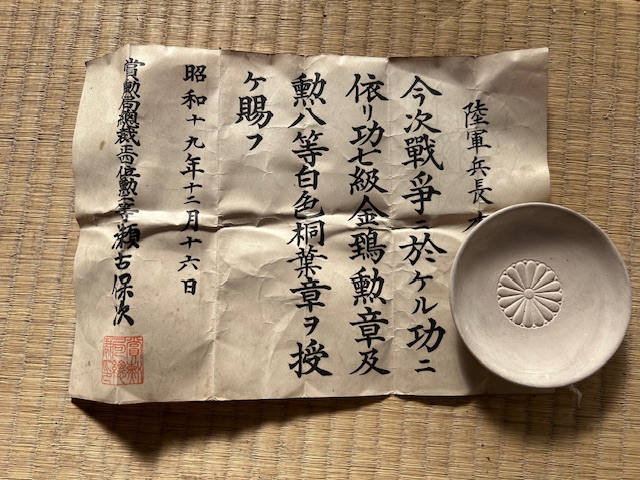 陸軍兵長
今次戰爭ニ於ケル功ニ
依リ功七級金鵄勲章及
勲八等白色桐葉章ヲ授
ケ賜フ
昭和十九年十二月十六日
賞勲局總裁正四位勲二等瀬古保次